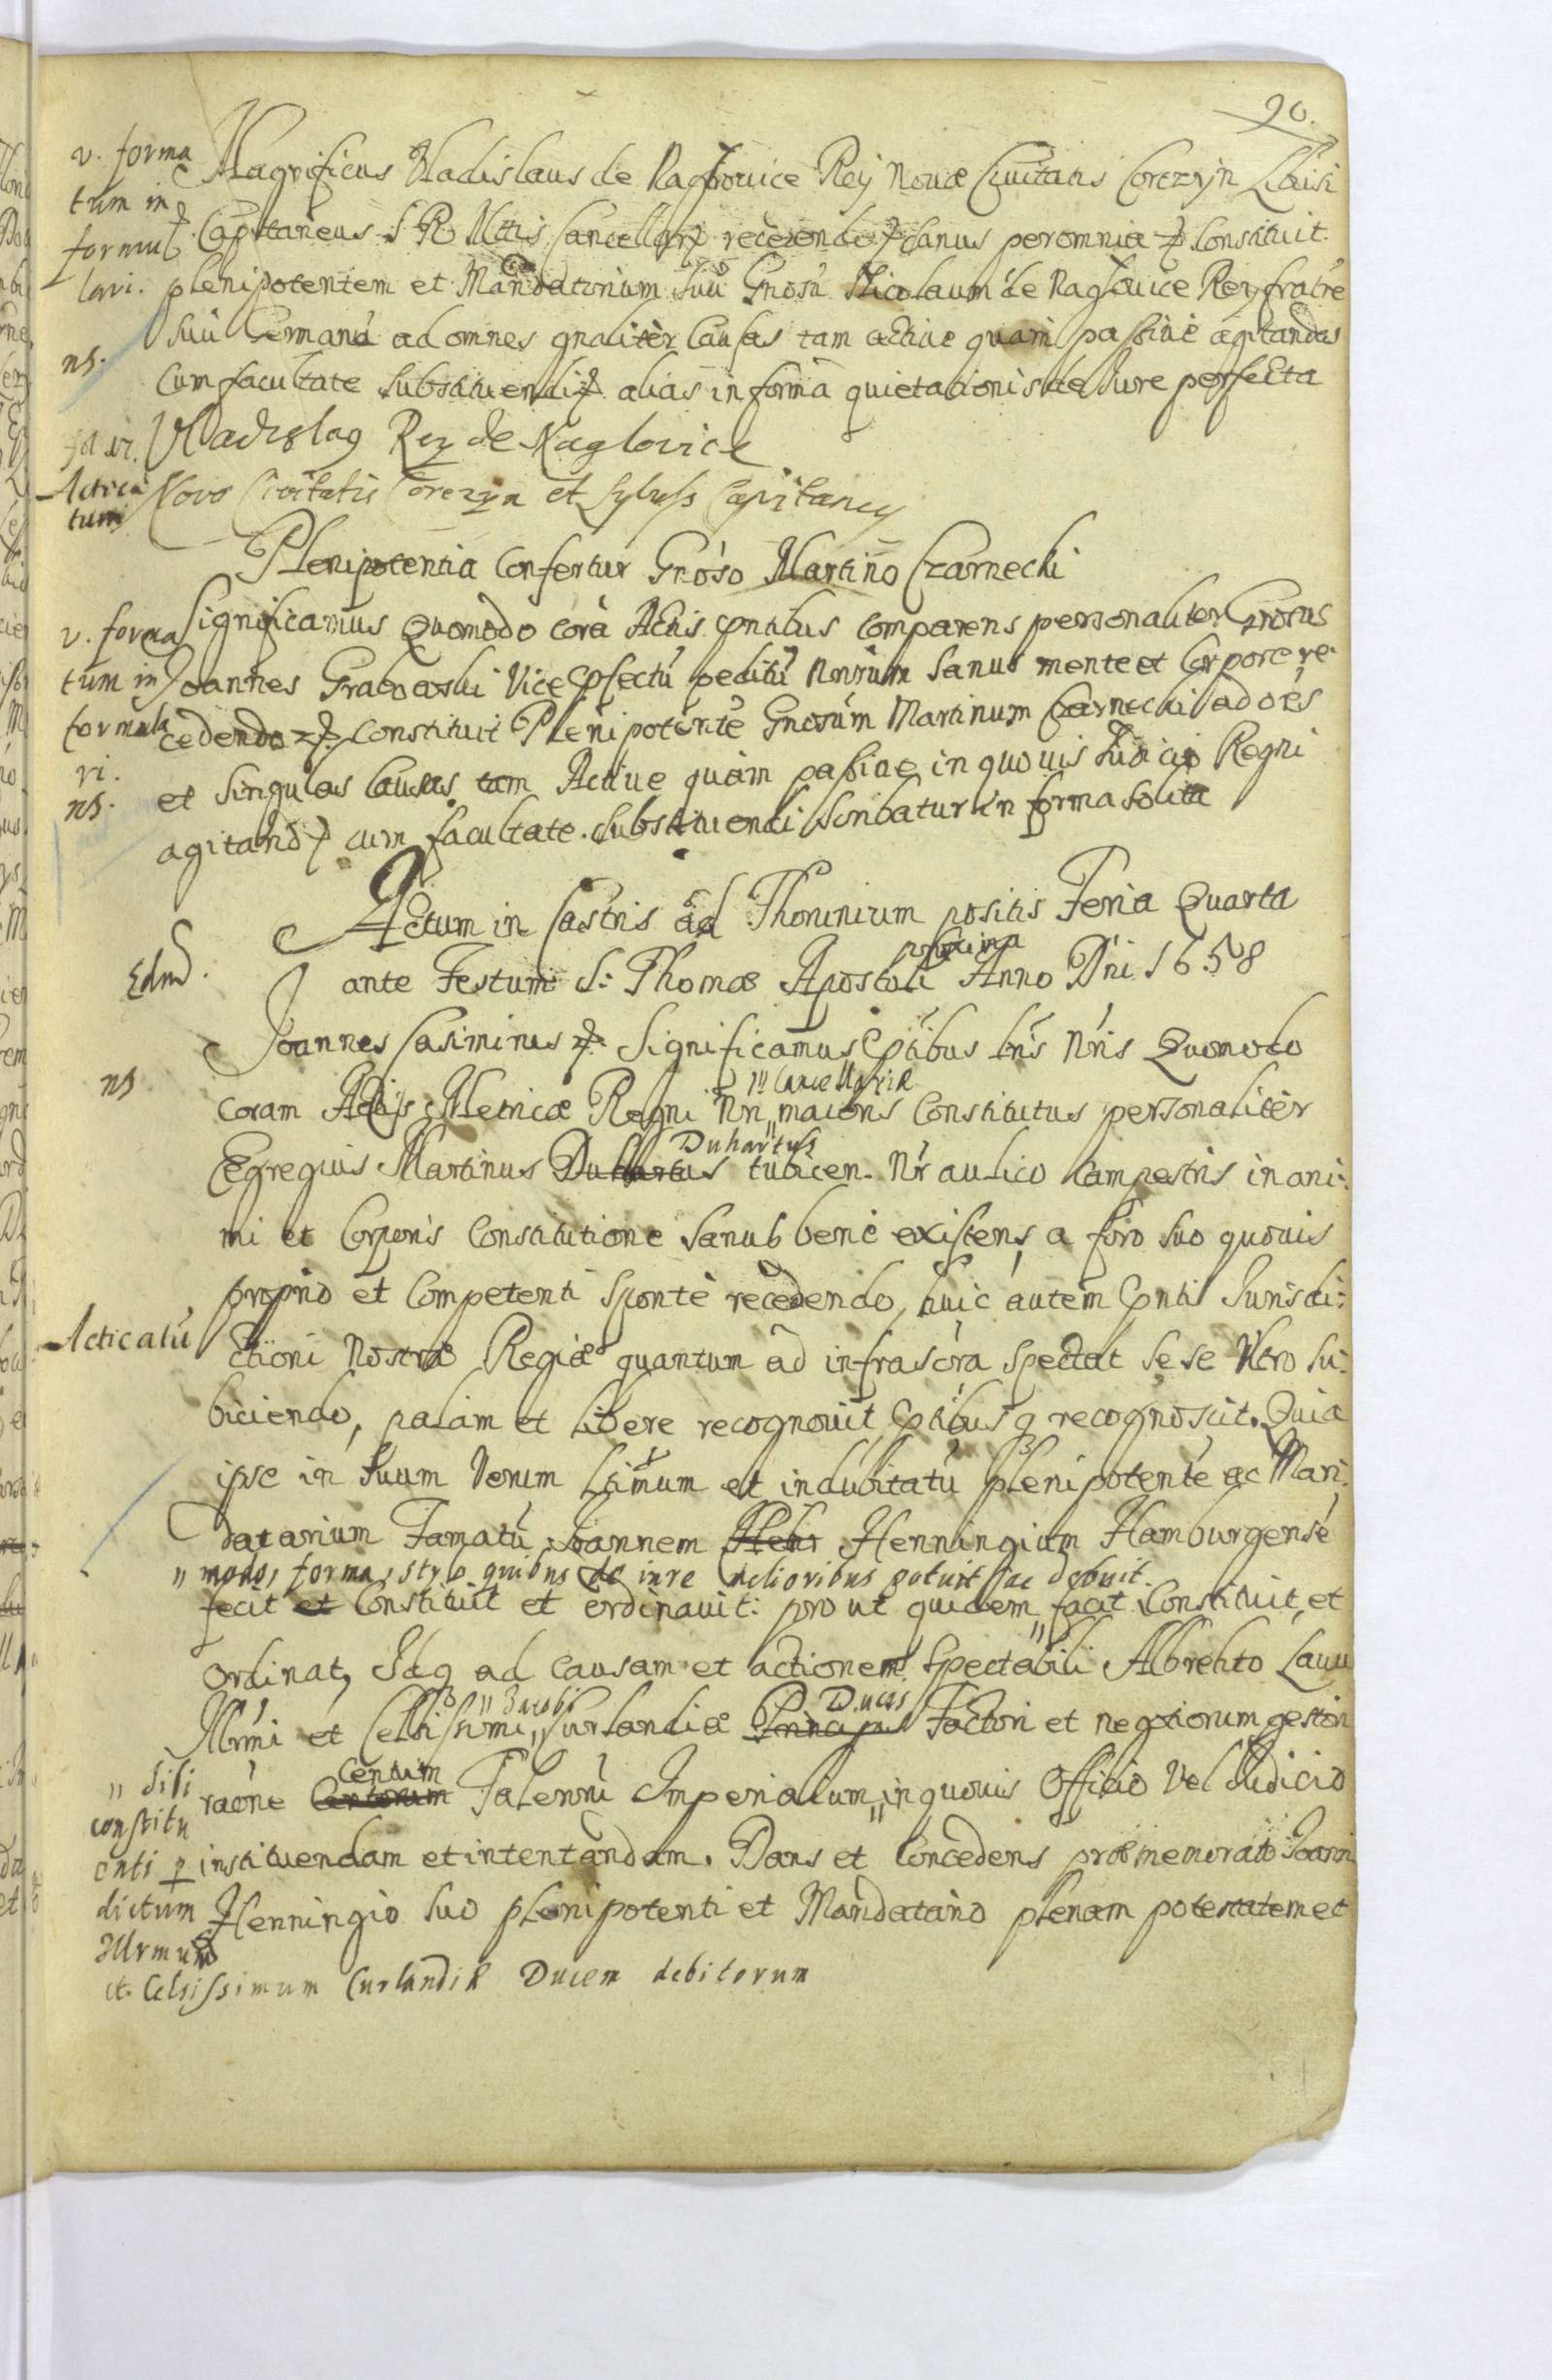 90.
v. forma
tum in
formu
lari.
ns.
Magnificus Vladislaus de Nagłowice Rey Novæ Civitatis Corczyn Libusi
Capitaneus S R Mttis Cancellar recedendo sanus per omnia Constituit
plenipotentem et Mandatarium suũ Gnosũ Nicolaum de Nagłovice Rey fratrẽ
suũ Germanũ ad omnes gnaliter Causas tam active quam passive agitandas
Cum facultate substituendi alias in forma quietationis de Iure perfecta
Vladyslag Rey de Naglovice
Actica
tum
Novo Civitatis Corczyn et Lybuss Capitaney
Plenipotentia Confertur Gnoso Martino Czarnecki
v. forma
tum in
formula
ri.
ns.
Significamus Quomodo corã Actis pntibus comparens personaliter Gnosus
Joannes Grabowski Vice pfectũ peditũ Nrorum Sanus mente et Corpore re
cedendo constituit Plenipotentẽ Gnosum Martinum Czarnecki ad oẽs
et singulas Causas tam Active quam passive in quovis Iudicio Regni
agitand cum facultate substituendi Scribatur in forma solita
Actum in Castris ad Thorunium positis Feria Quarta
Edmd.
ante Festum S: Thomæ Apostoli proxima Anno Dni 1658
Joannes Casimirus Significamus Pntibus lris Nris Quomodo
ns
coram Actis Metricæ Regni Nri " Cancellariæ maioris Constitutus personaliter
Egregius Martinus Duhartus tubicen Nr aulico Campestris in ani:
mi et Corporis Constitutione Sanus bene existens a foro suo quovis
proprio et Competenti sponte recedendo, huic autem Pnti Iurisdi:
Acticatũ
ctioni Nostræ Regiæ quantum ad infrascra spectat sese Vtro su:
biiciendo, palam et libere recognovit Pntibusq recognoscit. Quia
ipse in suum Verum Ltimum et indubitatũ plenipotentẽ ac Man:
datarium Famatũ Joannem Henningium Hamburgensẽ
" modo, forma, stylo quibus de iure melioribus potuit ac debuit.
fecit et Constituit et ordinavit: prout quidem facit Constituit et
ordinat, Idq ad causam et actionem Spectabili Albrehto Lauu
Illrmi et Celsissimi " Jacobi Curlandiæ Ducis Factori et negotiorum gestori
raone Centum Talerorũ Imperialium " in quovis Officio Vel Iudicio
" sibi
constitu
enti p
dictum
Illrmum
et Celsissimum Curlandiæ Ducem debitorum
instituendam et intentandam. Dans et Concedens præmemorato Joanni
Henningio suo plenipotenti et Mandatario plenam potestatem et